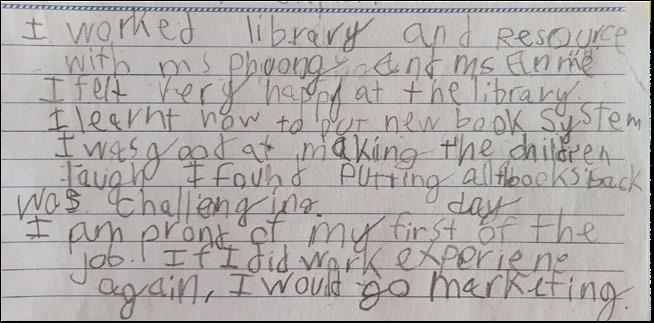 I worked library and resource
with ms phuong and ms Anme
I felt very happy at the library.
I learnt how to put new book system
I was good at making the children
laugh I found putting all books back
was challenging. day
I am proud of my first of the
job. If I did work experiene
again, I would go marketing.